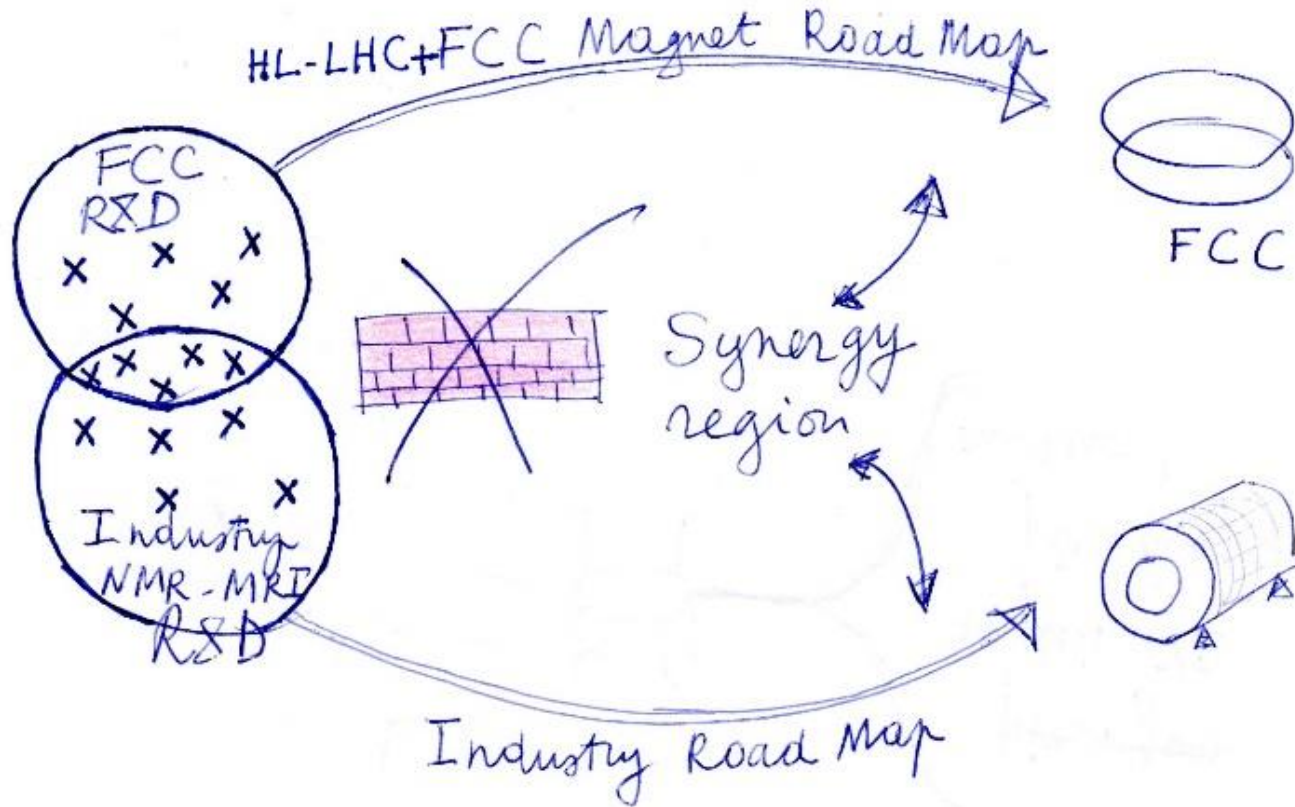 HL-LHC+FCC Magnet Road Map
FCC
R&D
FCC
Synergy
region
Industry
NMR-MRI
R&D
Industry Road Map